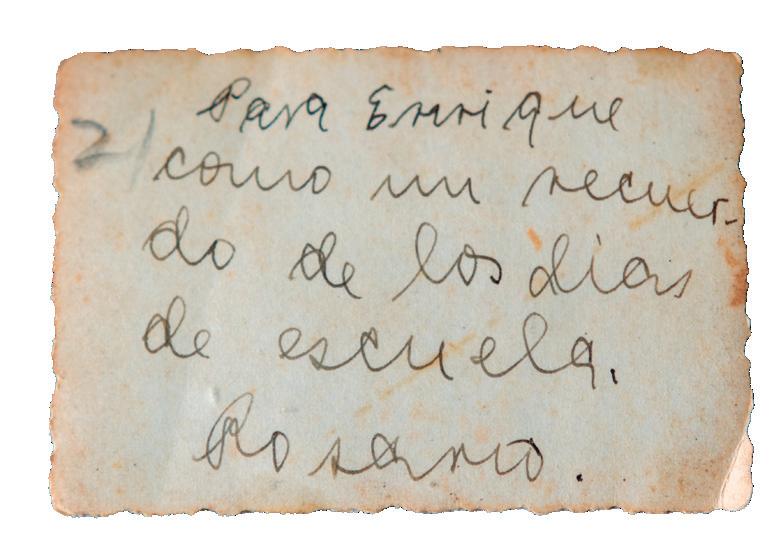 Para Enrique
21 como un recuer-
do de los dias
de escuela.
Rosario.